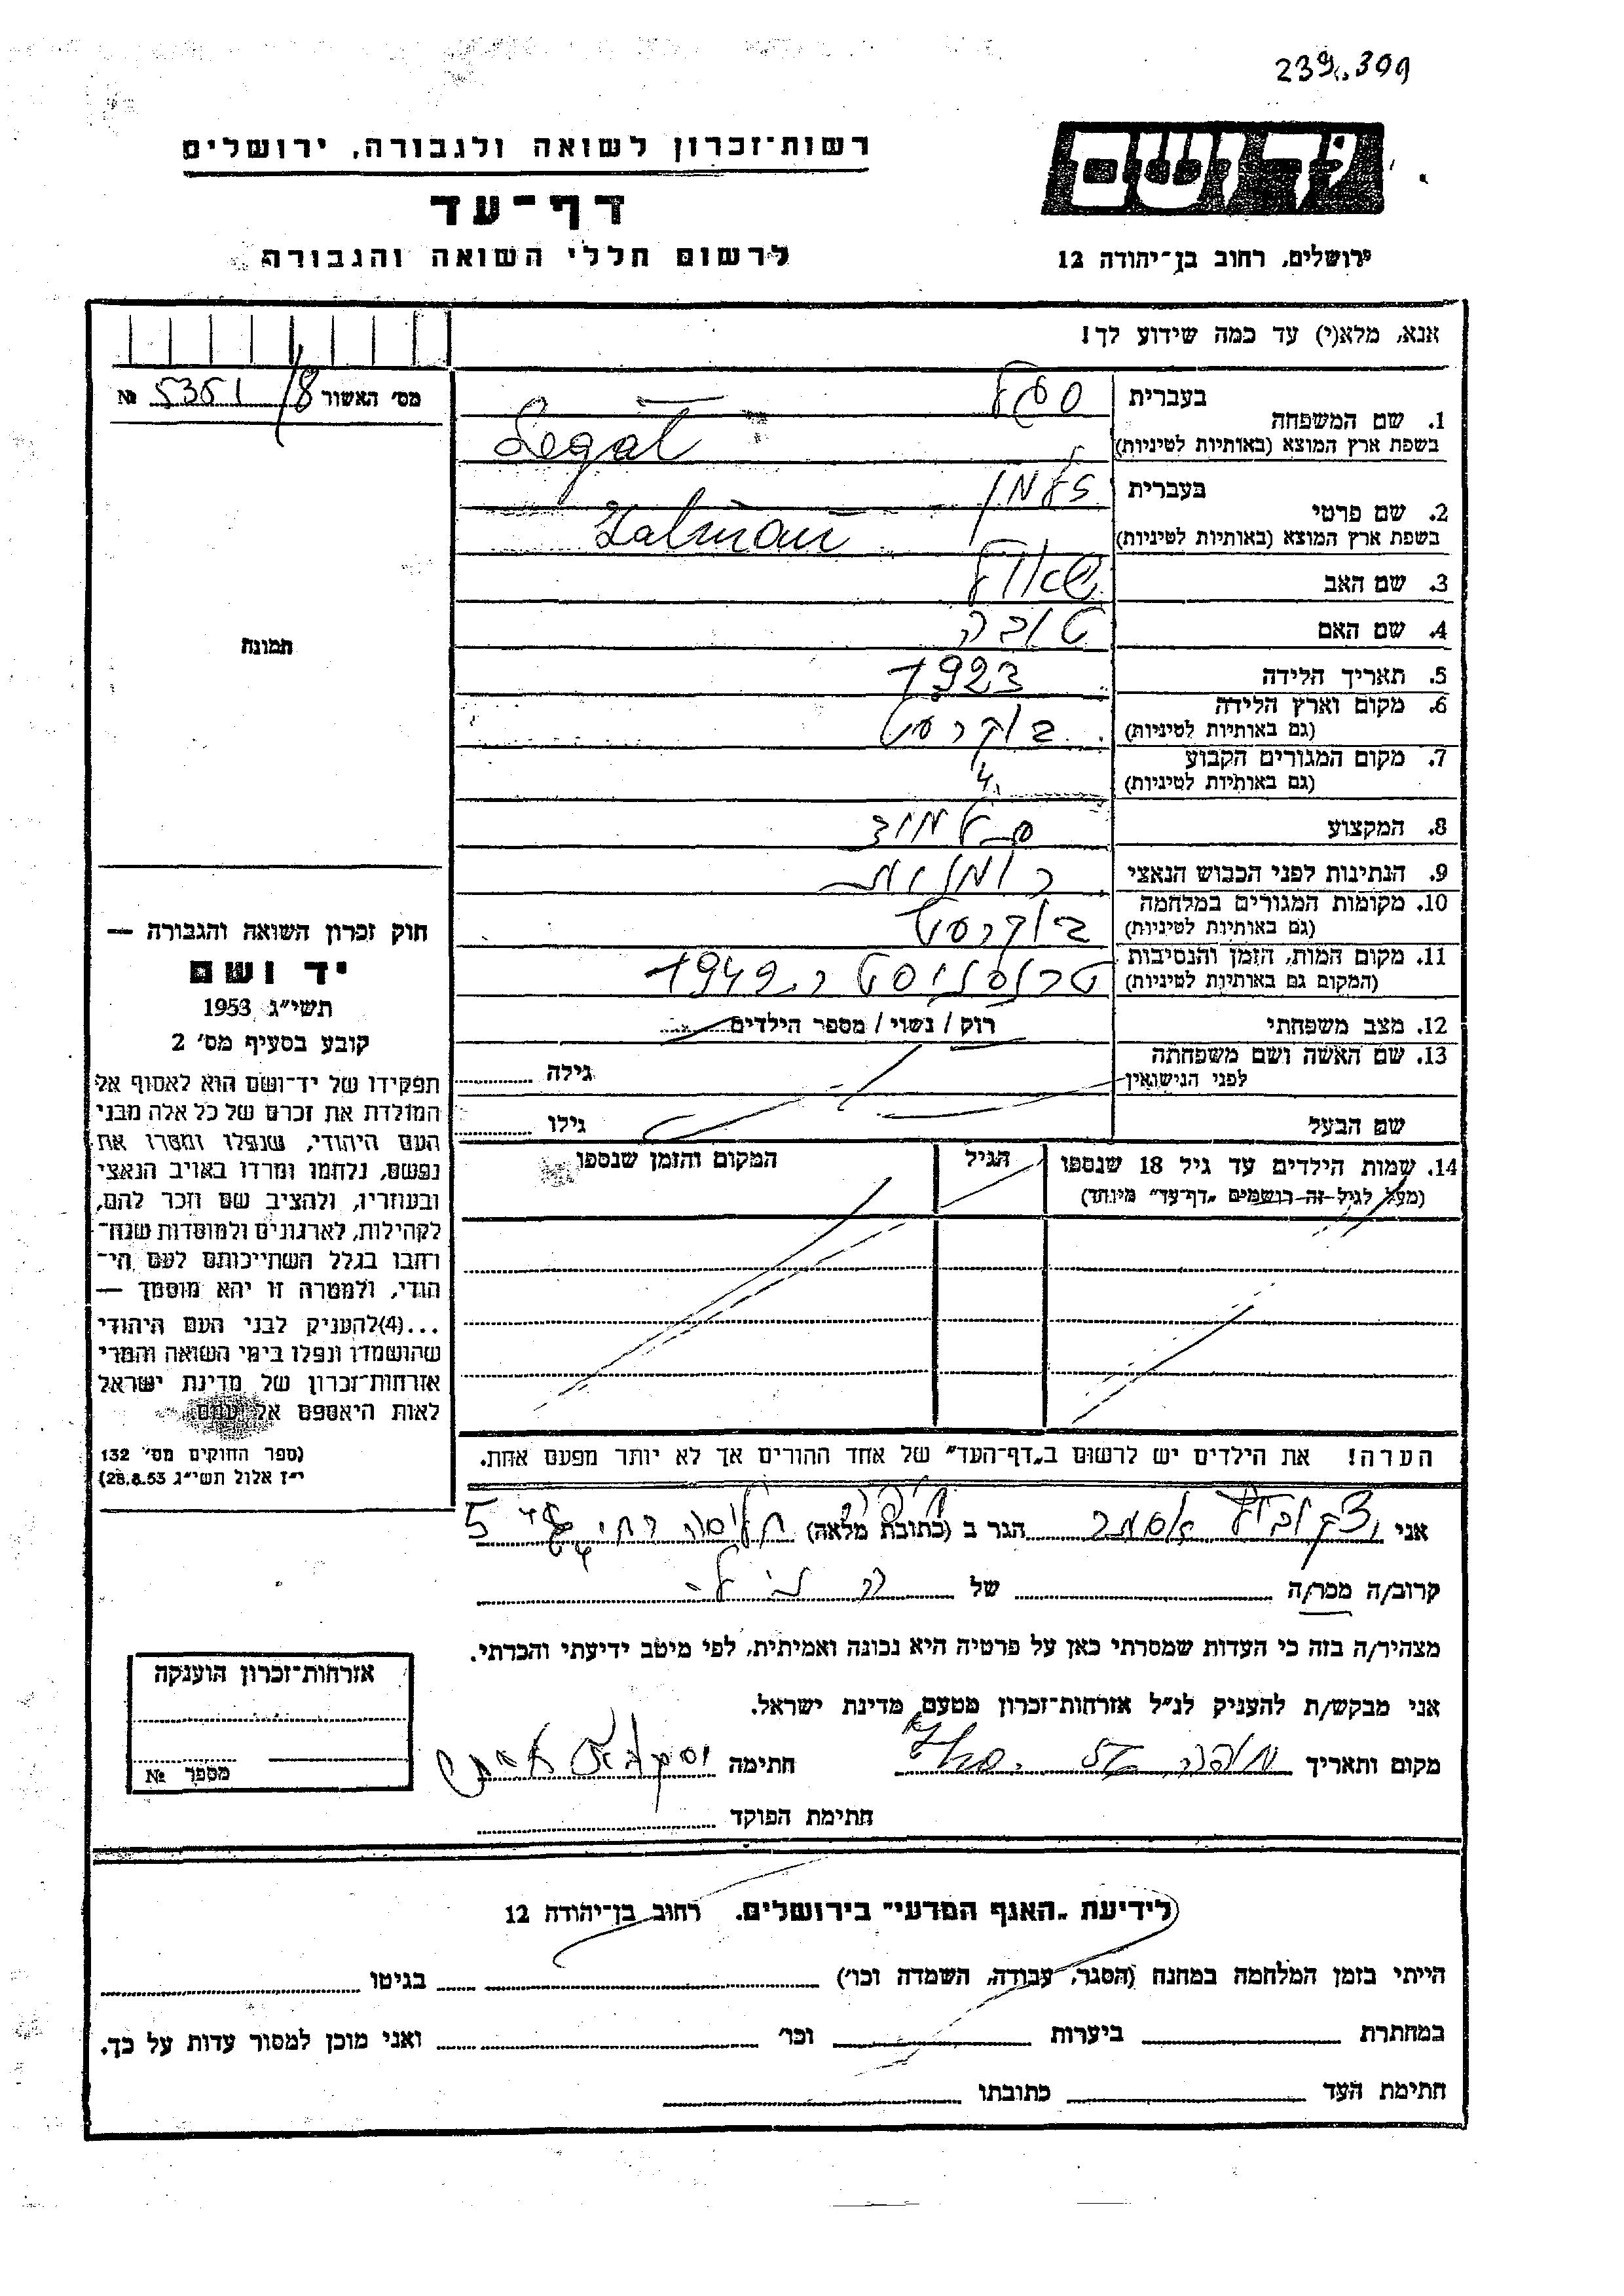 239.399
רשות־זכרון לשואה ולגבורה, ירושלים
יד ושם
דף־עד
לרשום חללי השואה והגבורה
ירושלים, רחוב בן־יהודה 12
אנא, מלא(י) עד כמה שידוע לך!
מס׳ האשור 5351/8 №
בעברית סגל
1. שם המשפחה
בשפת ארץ המוצא (באותיות לטיניות) Segal
בעברית זלמן
2. שם פרטי
בשפת ארץ המוצא (באותיות לטיניות) Zalman
3. שם האב שאול
4. שם האם טובה
תמונה
5. תאריך הלידה 1923
6. מקום וארץ הלידה
(גם באותיות לטיניות) בוקרסט
7. מקום המגורים הקבוע
(גם באותיות לטיניות)
8. המקצוע
9. הנתינות לפני הכבוש הנאצי רומנית
10. מקומות המגורים במלחמה
(גם באותיות לטיניות) בוקרסט
11. מקום המות, הזמן והנסיבות
(המקום גם באותיות לטיניות)
12. מצב משפחתי רוק / נשוי / מספר הילדים
13. שם האשה ושם משפחתה
לפני הנישואין
גילה
שם הבעל
גילו
14. שמות הילדים עד גיל 18 שנספו
(מעל לגיל זה רושמים „דף־עד״ מיוחד)
הגיל
המקום והזמן שנספו
חוק זכרון השואה והגבורה —
יד ושם
תשי״ג 1953
קובע בסעיף מס׳ 2
תפקידו של יד־ושם הוא לאסוף אל
המולדת את זכרם של כל אלה מבני
העם היהודי, שנפלו ומסרו את
נפשם, נלחמו ומרדו באויב הנאצי
ובעוזריו, ולהציב שם וזכר להם,
לקהילות, לארגונים ולמוסדות שנח־
רבו בגלל השתייכותם לעם הי־
הודי, ולמטרה זו יהא מוסמך —
...(4)להעניק לבני העם היהודי
שהושמדו ונפלו בימי השואה והמרי
אזרחות־זכרון של מדינת ישראל
לאות היאספם אל עמם.
(ספר החוקים מס׳ 132
י״ז אלול תשי״ג 28.8.53)
הערה! את הילדים יש לרשום ב„דף־העד״ של אחד ההורים אך לא יותר מפעם אחת.
אני הגר ב (כתובת מלאה) 5
קרוב/ה מכר/ה של
מצהיר/ה בזה כי העדות שמסרתי כאן על פרטיה היא נכונה ואמיתית, לפי מיטב ידיעתי והכרתי.
אני מבקש/ת להעניק לנ״ל אזרחות־זכרון מטעם מדינת ישראל.
מקום ותאריך חתימה
חתימת הפוקד
אזרחות־זכרון הוענקה
מספר №
לידיעת „האגף המדעי״ בירושלים. רחוב בן־יהודה 12
הייתי בזמן המלחמה במחנה (הסגר, עבודה, השמדה וכו׳) בגיטו
במחתרת ביערות וכו׳ ואני מוכן למסור עדות על כך.
חתימת העד כתובתו